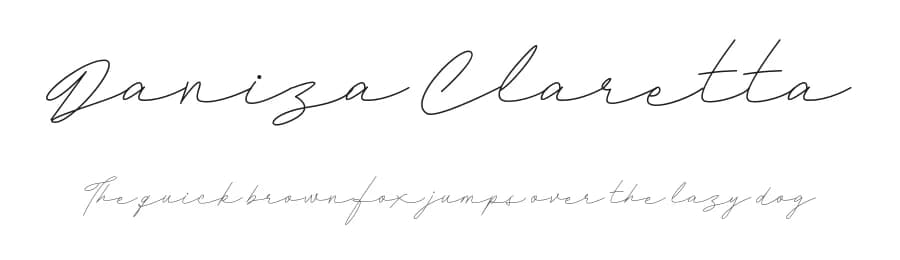 Daniza Claretta
The quick brown fox jumps over the lazy dog